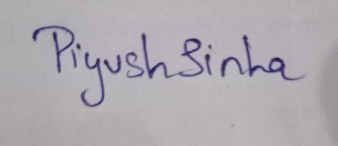 Piyush Sinha